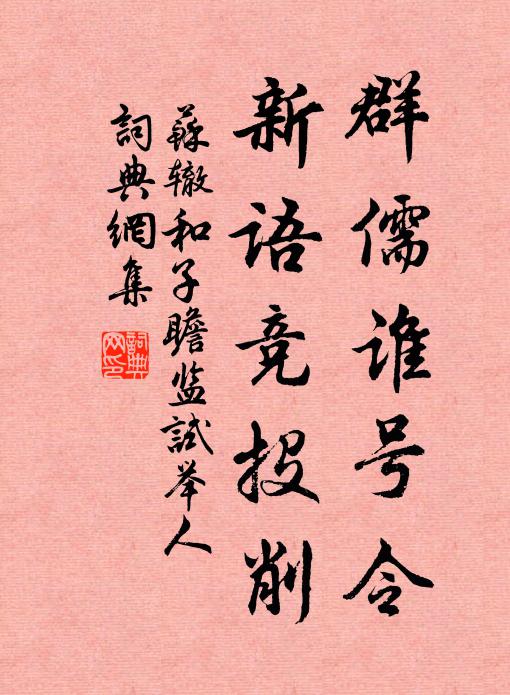 群儒谁号令
新语竞投削
蘇辙和子瞻监試举人
詞典網集
詞典網印